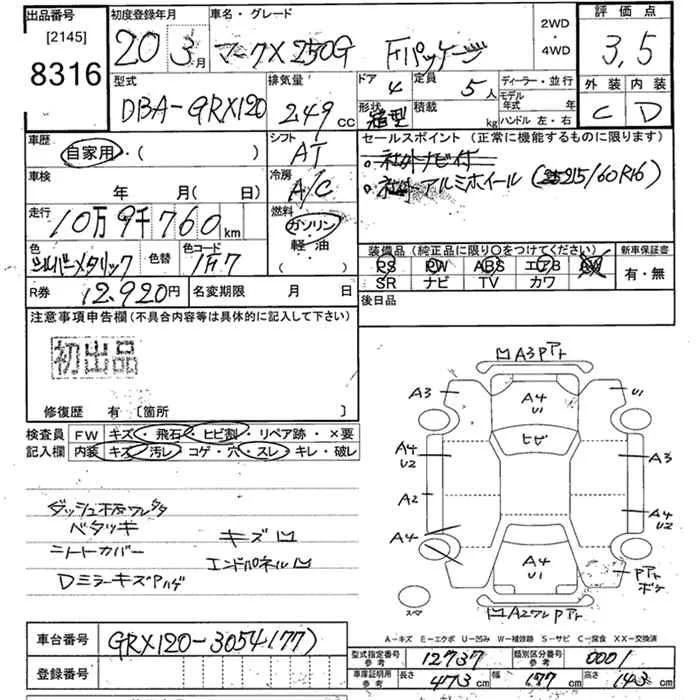 出品番号
[2145]
8316
初度登録年月
20 3月
車名・グレード
マークX 250G Fパッケージ
2WD
・
4WD
評価点
3,5
型式
DBA-GRX120
排気量
249 cc
ドア 4
定員 5人
ディーラー・並行
形状 箱型
積載 kg
モデル年式 年
ハンドル 左・右
外装 内装
C D
車歴
自家用・( )
シフト
AT
セールスポイント (正常に機能するものに限ります)
。社外ナビ付
。社外アルミホイール (215/60R16)
車検
年 月( 日)
冷房
A/C
走行
10万9千760km
燃料
ガソリン・
軽・油
( )
色
シルバーメタリック
色替
色コード
1F7
装備品(純正品に限り○をつけてください)
PS PW ABS エアB AW
SR ナビ TV カワ
新車保証書
有・無
R券 12,920円
名変期限 月 日
後日品
注意事項申告欄(不具合内容等は具体的に記入して下さい)
初出品
修復歴 有 〔箇所 〕
検査員 FW キズ・飛石・ヒビ割・リペア跡・×要
記入欄 内装 キズ・汚レ・コゲ・穴・スレ・キレ・破レ
ベタツキ
キズ凹
シートカバー
エンドパネル凹
DミラーキズPハゲ
A3Pアト
A3
A4
U1
U1
ヒビ
A4
U2
A3
A2
A4
U2
A4
A4
U1
Pアト
ボケ
スペア
A2ワレPアト
A-キズ E-エクボ U-凹み W-補修跡 S-サビ C-腐食 XX-交換済
車台番号 GRX120-3054177)
登録番号
型式指定番号
参考
12737
類別区分番号
参考
0001
車庫証明用
参考
長さ 473cm
幅 177cm
高さ 143cm